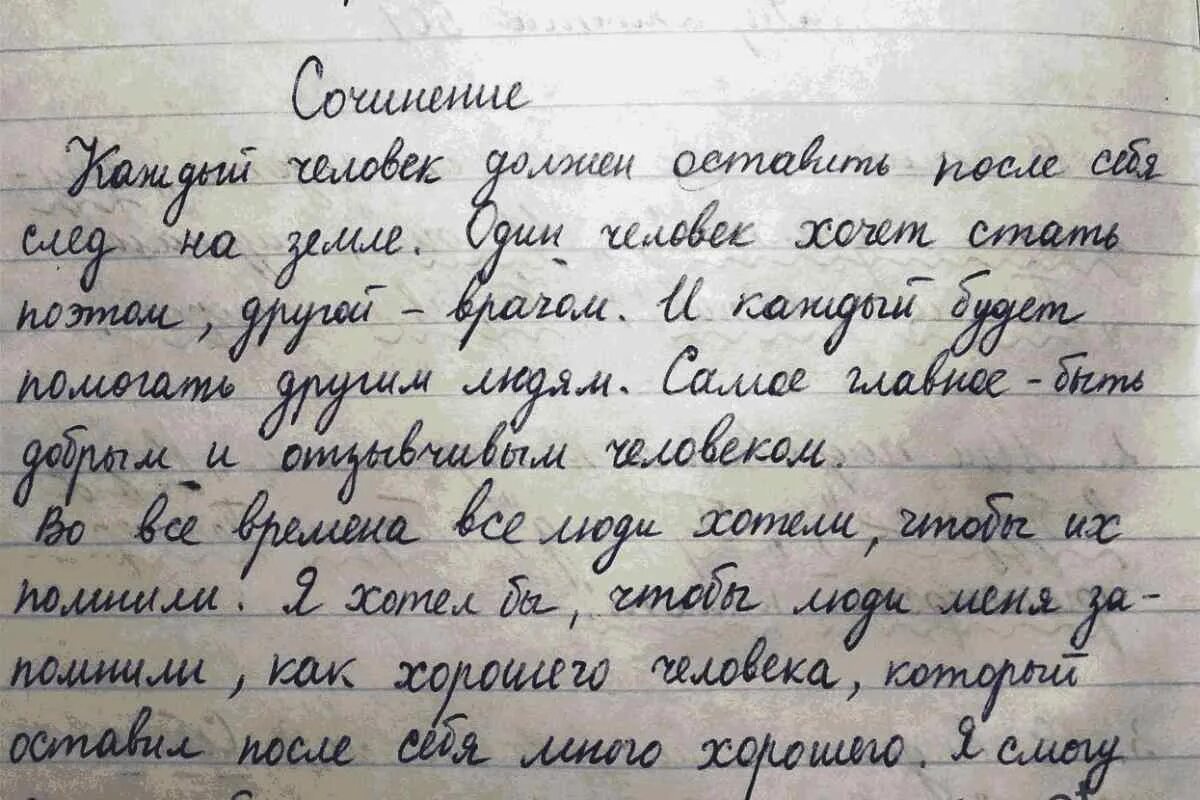 Сочинение
Каждый человек должен оставить после себя
след на земле. Один человек хочет стать
поэтом, другой – врачом. И каждый будет
помогать другим людям. Самое главное – быть
добрым и отзывчивым человеком.
Во все времена все люди хотели, чтобы их
помнили. Я хотел бы, чтобы люди меня за-
помнили, как хорошего человека, который
оставил после себя много хорошего. Я смогу